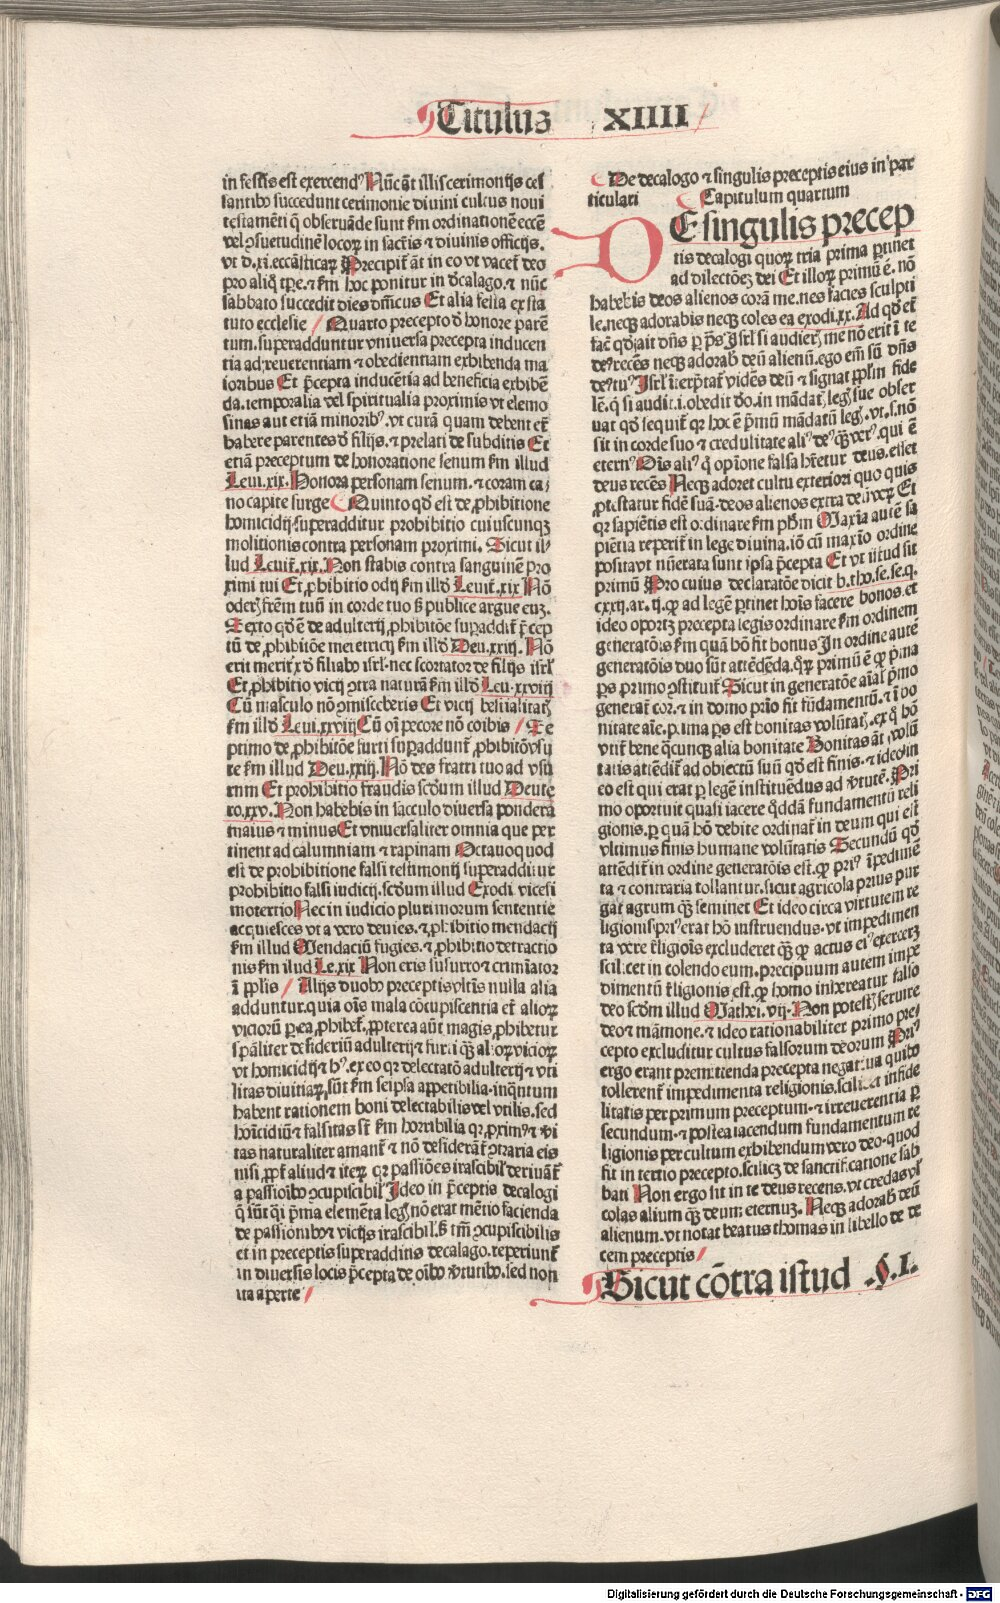 Titulus XIIII
in festis est exercendꝰ Nūc āt illis cerimonijs ces
santibꝰ succedunt cerimonie diuini cultus noui
testamēti q̄ obseruāde sunt ẜm ordinationē eccē
vel ꝯsuetudinē locoꝝ in sacris ⁊ diuinis officijs.
vt d.xi. eccāsticaꝝ Precipit̄ āt in eo vt vacet deo
pro aliq̄ tꝑe. ⁊ ẜm hoc ponitur in dcalago. ⁊ nūc
sabbato succedit dies dn̄icus Et alia festa ex sta
tuto ecclesie Quarto precepto d̄ honore parē
tum. superadduntur vniuersa precepta inducen
tia ad reuerentiam ⁊ obedientiam exhibenda ma
ioribus Et p̄cepta inducētia ad beneficia exhibē
da. temporalia vel spiritualia proximis vt elemo
sinas aut etiā minoribꝰ. vt curā quam debent et̄
habere parentes d̄ filijs. ⁊ prelati de subditis Et
etiā preceptum de honoratione senum ẜm illud
Leui.xix. Honora personam senum. ⁊ coram ca
no capite surge Quinto qd̄ est de ꝓhibitione
homicidij superadditur prohibitio cuiuscunqꝫ
molitionis contra personam proximi. Sicut il
lud Leuit.xix. Non stabis contra sanguinē pro
ximi tui Et ꝓhibitio odij ẜm illd̄ Leuit.xix Nō
oderꝭ frēm tuū in corde tuo sꝫ publice argue euꝫ.
Sexto qd̄ ē de adulterij ꝓhibitiōe suꝑaddit̄ p̄cep
tū de ꝓhibitiōe meretricij ẜm illd̄ Deu.xxiij. Nō
erit meritr̄x d̄ filiabꝰ isrl̄. nec scortator de filijs isrl̄
Et ꝓhibitio vicij ꝯtra naturā ẜm illd̄ Leu.xxviij
Cū masculo nō ꝯmisceberis Et vicij bestialitatꝭ
ẜm illd̄ Leui.xxviij Cū oī pecore nō coibis Se
ptimo de ꝓhibitiōe furti suꝑaddunt̄ ꝓhibitōꝫ vsu
re ẜm illud Deu.xxiij. Nō des fratri tuo ad vsu
ram Et prohibitio fraudis scd̄um illud Deute
ro.xxv. Non habebis in sacculo diuersa pondera
maius ⁊ minus Et vniuersaliter omnia que per
tinent ad calumniam ⁊ rapinam Octauo quod
est de prohibitione falsi testimonij superadditur
prohibitio falsi iudicij. scd̄um illud Exodi vicesi
motertio Nec in iudicio plurimorum sententie
acquiesces vt a vero deuies. ⁊ ꝓhibitio mendacij
ẜm illud Mendaciū fugies. ⁊ ꝓhibitio detractio
nis ẜm illud Le.xix Non eris susurro ⁊ crimīator
ī pplīs Alijs duobꝰ preceptis vltīs nulla alia
adduntur. quia oīs mala cōcupiscentia et̄ alioꝝ
vicioꝝ ꝑ ea ꝓhibet̄. ꝓpterea aūt magis ꝓhibetur
spāliter desideriū adulterij ⁊ furti q̄ꝫ alioꝝ vicioꝝ
vt homicidij ⁊ hꝰ. ex eo qꝛ delectatō adulterij ⁊ vti
litas diuitiaꝝ sūt ẜm seipsa appetibilia. inqn̄tum
habent rationem boni delectabilis vel vtilis. sed
homicidiū ⁊ falsitas st̄ ẜm horribilia qꝛ ꝓximꝰ ⁊ vi
tas naturaliter amant̄ ⁊ nō desiderāt̄ ꝯtraria eis
nisi ꝓpt̄ aliud ⁊ iteꝝ qꝛ passiōes irascibiꝉ deriuāt̄
a passioībꝰ ꝯcupiscibiꝉ Ideo in p̄ceptis decalogi
q̄ sūt q̄i p̄ma elemēta legꝭ nō erat mētio facienda
de passionibꝰ ⁊ vicijs irascibiꝉ. sꝫ tm̄ ꝯcupiscibilis
et in preceptis superadditis decalago. reperiunt̄
in diuersis locis p̄cepta de oībꝰ v̓tutibꝰ. sed non
ita aperte
De decalogo ⁊ singulis preceptis eius in par
ticulari Capitulum quartum
DE singulis precep
tis decalogi quoꝝ tria prima ꝑtinet
ad dilectōeꝫ dei Et illoꝝ primū ē. nō
habebis deos alienos corā me. nec facies sculpti
le. neqꝫ adorabis neqꝫ coles ea exodi.xx. Ad qd̄ et̄
fac̄ qd̄ ait dn̄s ꝑ p̄s Isrl̄ si audierꝭ me nō erit ī te
deꝰ recēs neqꝫ adorabꝭ deū alienū. ego em̄ sū dn̄s
deꝰ tuꝰ Isrl̄ īterp̄tat̄ vidēs deū ⁊ signat ppl̄m fide
lē. q̄ si audit .i. obedit dō. in mādatꝭ legꝭ sue obser
uat qd̄ sequit̄ qꝛ hoc ē p̄mū mādatū legꝭ. vt .s. nō
sit in corde suo ⁊ credulitate aliꝰ deꝰ q̄ꝫ verꝰ. qui ē
eternꝰ Oīs aliꝰ q̄ opīone falsa hr̄etur deus. esset
deus recēs Neqꝫ adoret cultu exteriori quo quis
ꝓtestatur fidē suā. deos alienos extra deū veꝝ Et
qꝛ sapiētis est ordinare ẜm ph̄m Maxīa autē sa
piētia reperit̄ in lege diuina. iō cū maxīo ordine
posita ⁊ nūerata sunt ipsa p̄cepta Et vt istud sit
primū Pro cuius declaratōe dicit b.tho.se.se.q.
cxxij.ar.ij. ꝙ ad legē ꝑtinet hoīs facere bonos. et
ideo oportꝫ precepta legis ordinare ẜm ordinem
generatōis ẜm quā hō fit bonus In ordine autē
generatōis duo sūt attēdēda. qꝝ primū ē ꝙ p̄ma
ps̄ primo ꝯstituit̄ Sicut in generatōe aīal p̄mo
generat̄ cor. ⁊ in domo prīo fit fūdamentū. ⁊ ī bo
nitate aīe. prima ps̄ est bonitas volūtatꝭ. ex q̄ hō
vtit̄ bene q̄cunqꝫ alia bonitate Bonitas āt volū
tatis attēdit̄ ad obiectū suū qd̄ est finis. ⁊ ideo in
eo est qui erat ꝑ legē instituēdus ad v̓tutē. Pri
mo oportuit quasi iacere qd̄dā fundamentū reli
gionis. ꝑ quā hō debite ordinat̄ in deum qui est
vltimus finis humane volūtatis Secundū qd̄
attēdit̄ in ordine generatōis est. ꝙ priꝰ īpedimē
ta ⁊ contraria tollantur. sicut agricola prius pur
gat agrum q̄ꝫ seminet Et ideo circa virtutem re
ligionis priꝰ erat hō instruendus. vt impedimen
ta vere r̄ligiōis excluderet q̄ꝫ ꝙ actus eiꝰ exerceꝫ
scilicet in colendo eum. precipuum autem impe
dimentū r̄ligionis est. ꝙ homo inhereatur falso
deo scd̄m illud Mathei.vij. Non potestꝭ seruire
deo ⁊ māmone. ⁊ ideo rationabiliter primo pre
cepto excluditur cultus falsorum deorum Priꝰ
ergo erant premittenda precepta negatiua quibꝰ
tollerent̄ impedimenta religionis. scilicet infide
litatis per primum preceptum. ⁊ irreuerentia ꝑ
secundum. ⁊ postea iacendum fundamentum re
ligionis per cultum exhibendum vero deo. quod
fit in tertio precepto. scilicꝫ de sanctificatione sab
bati Non ergo sit in te deus recens. vt credas vꝉ
colas alium q̄ꝫ deum eternuꝫ. Neqꝫ adorabꝭ deū
alienum. vt notat beatus thomas in libello de de
cem preceptis
Sicut cōtra istud .§.I.
Digitalisierung gefördert durch die Deutsche Forschungsgemeinschaft - DFG